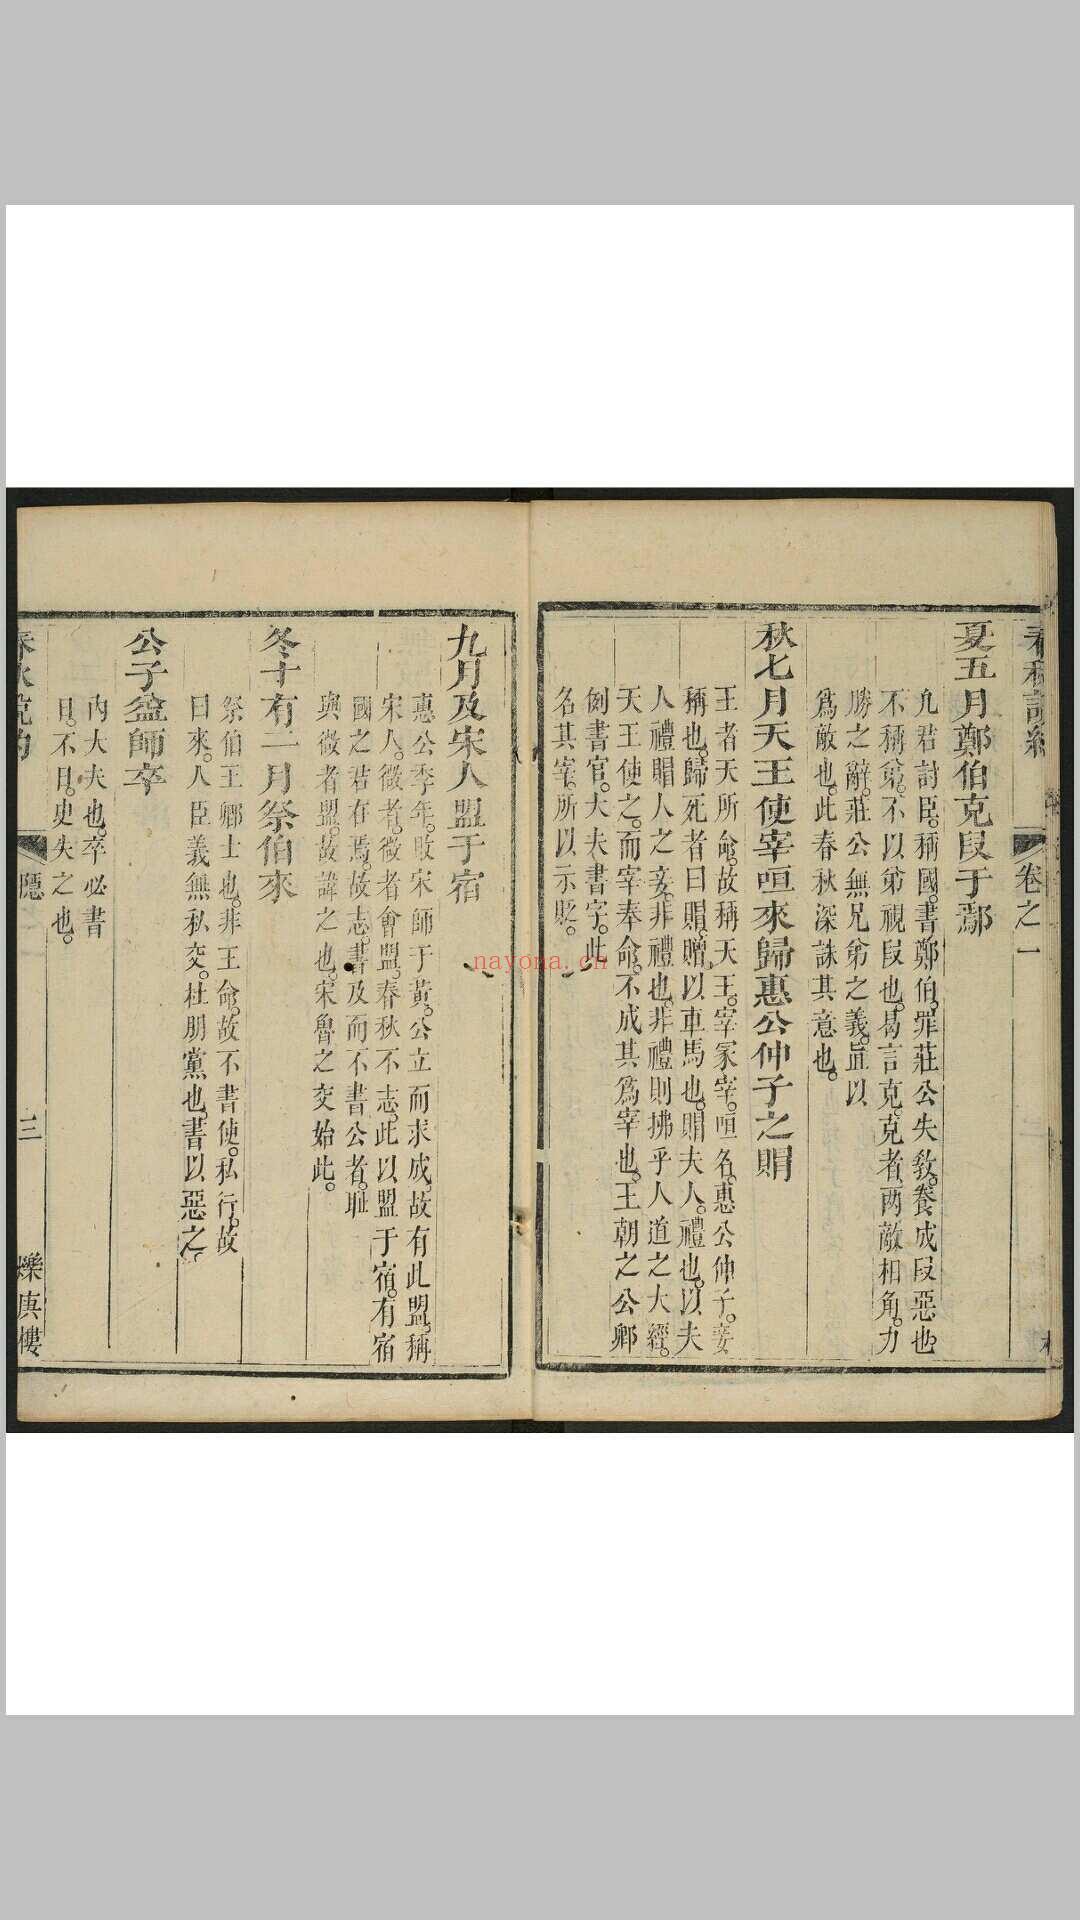 卷之一
夏五月鄭伯克段于鄢
凡君討臣。稱國。書鄭伯。罪莊公失敎。養成段惡也
不稱弟。不以弟視段也。曷言克。克者兩敵相角。力
勝之辭。莊公無兄弟之義。直以
爲敵也。此春秋深誅其意也。
秋七月天王使宰咺來歸惠公仲子之賵
王者天所命。故稱天王。宰冢宰。咺名。惠公仲子。妾
稱也。歸死者曰賵。贈以車馬也。賵夫人。禮也。以夫
人禮賵人之妾。非禮也。非禮則拂乎人道之大經。
天王使之。而宰奉命。不成其爲宰也。王朝之公卿
例書官。大夫書字。此
名其宰。所以示貶。
九月及宋人盟于宿
惠公季年。敗宋師于黃。公立而求成。故有此盟。稱
宋人。微者。微者會盟。春秋不志。此以盟于宿。有宿
國之君在焉。故志。書及而不書公者。耻
與微者盟。故諱之也。宋魯之交始此。
冬十有二月祭伯來
祭伯王卿士也。非王命。故不書使。私行。故
曰來。人臣義無私交。杜朋黨也。書以惡之。
公子益師卒
內大夫也。卒必書
日。不日。史失之也。
隱
三
爍庚樓
nayona.cn